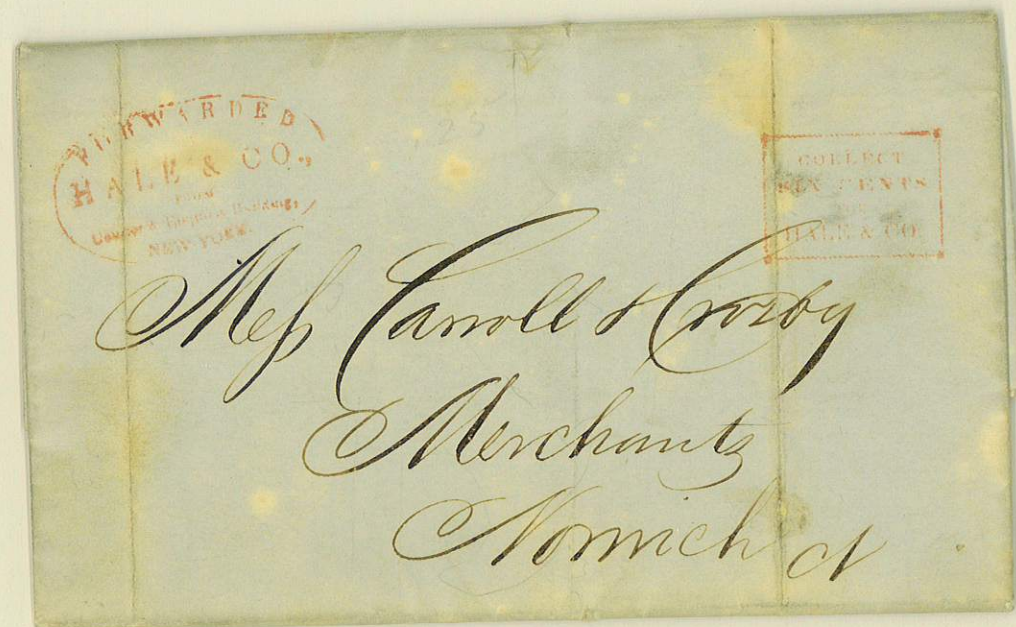 FORWARDED
HALE & CO.,
FROM
Buildings
NEW YORK.
COLLECT
SIX CENTS
FOR
HALE & CO.
25
Mess Carroll & Crosby
Merchants
Norwich Ct